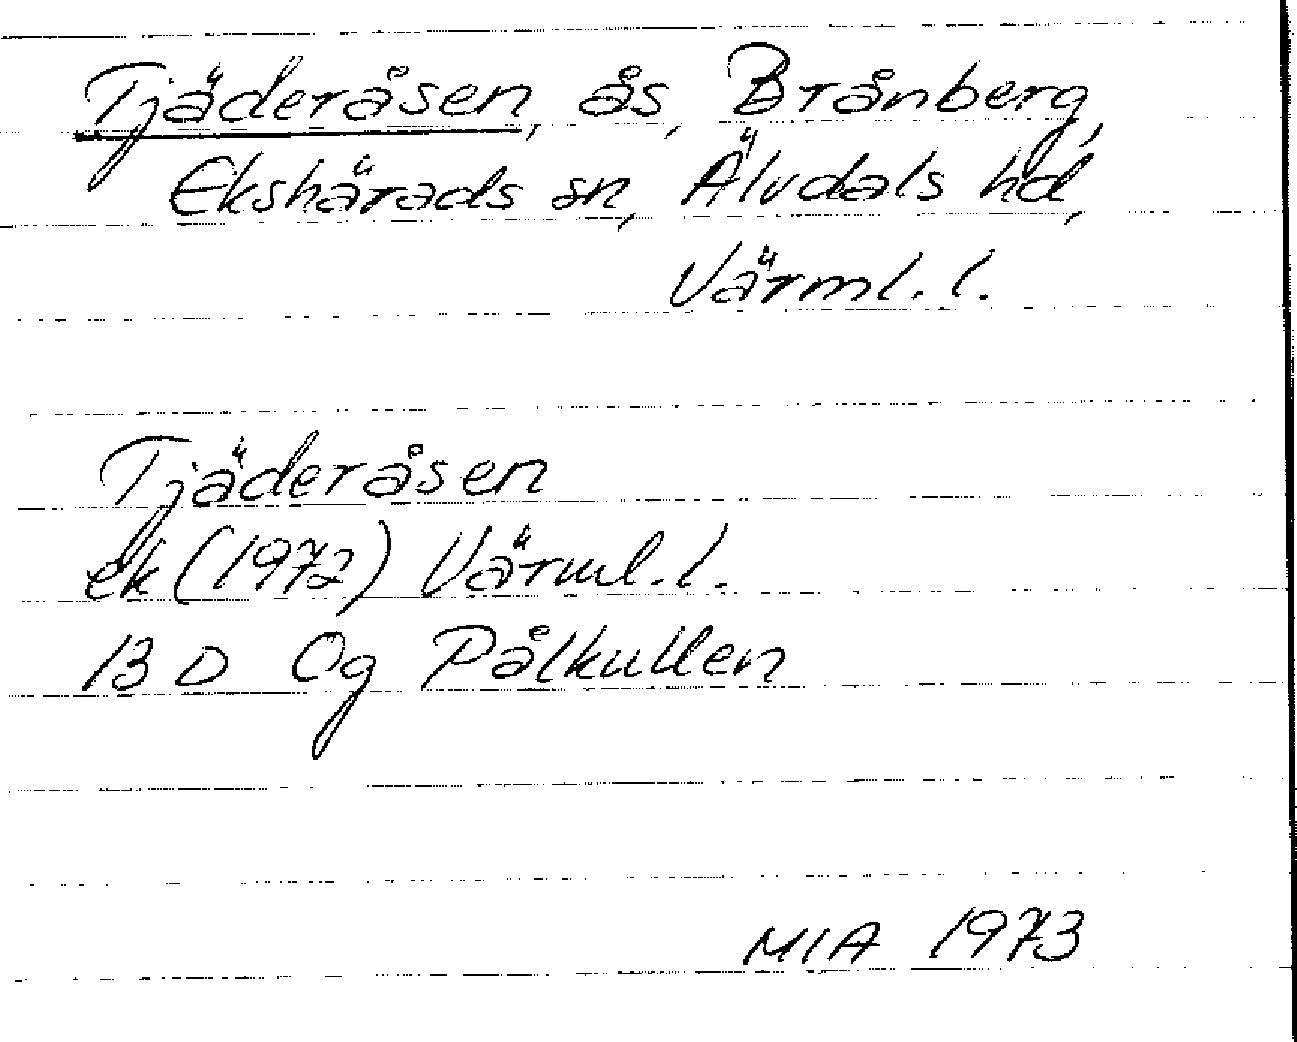 Tjäderåsen, ås, Brånberg,
Ekshärads sn, Älvdals hd,
Värml. l.
Tjäderåsen
ek (1972) Värml. l.
13 D 0g Pålkullen
MIA 1973